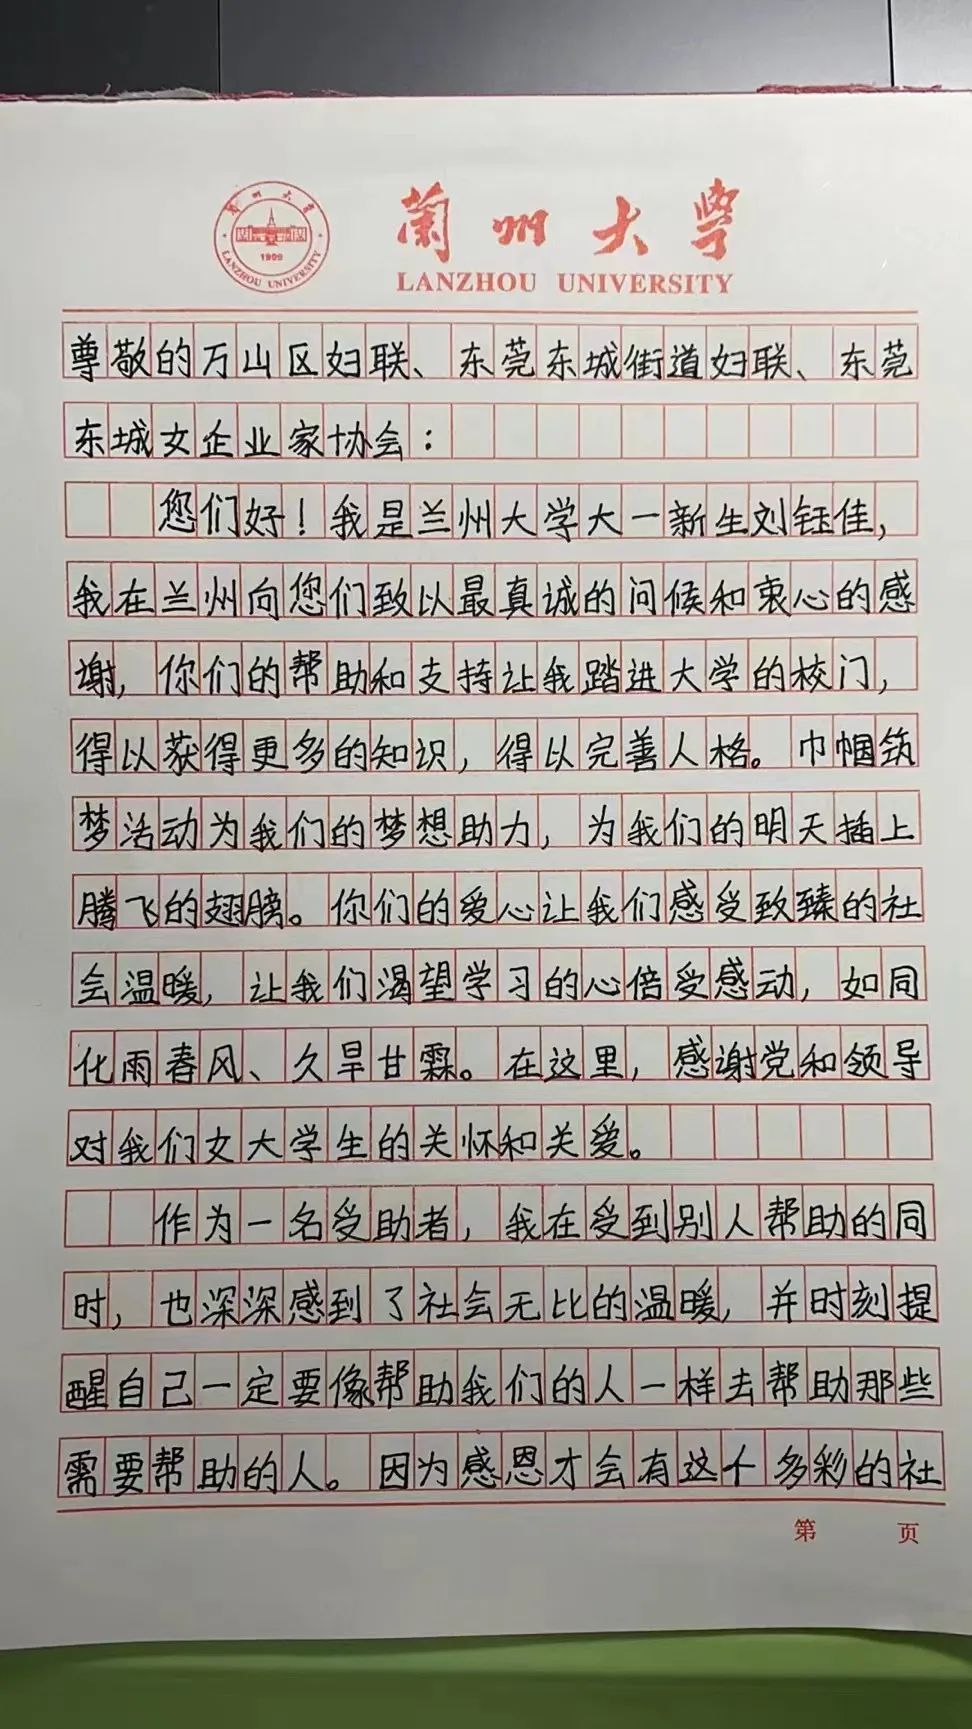 兰州大学
LANZHOU UNIVERSITY
1909
蘭州大学
LANZHOU UNIVERSITY
尊敬的万山区妇联、东莞东城街道妇联、东莞
东城女企业家协会：
您们好！我是兰州大学大一新生刘钰佳，
我在兰州向您们致以最真诚的问候和衷心的感
谢，你们的帮助和支持让我踏进大学的校门，
得以获得更多的知识，得以完善人格。巾帼筑
梦活动为我们的梦想助力，为我们的明天插上
腾飞的翅膀。你们的爱心让我们感受致臻的社
会温暖，让我们渴望学习的心倍受感动，如同
化雨春风、久旱甘霖。在这里，感谢党和领导
对我们女大学生的关怀和关爱。
作为一名受助者，我在受到别人帮助的同
时，也深深感到了社会无比的温暖，并时刻提
醒自己一定要像帮助我们的人一样去帮助那些
需要帮助的人。因为感恩才会有这个多彩的社
第 页